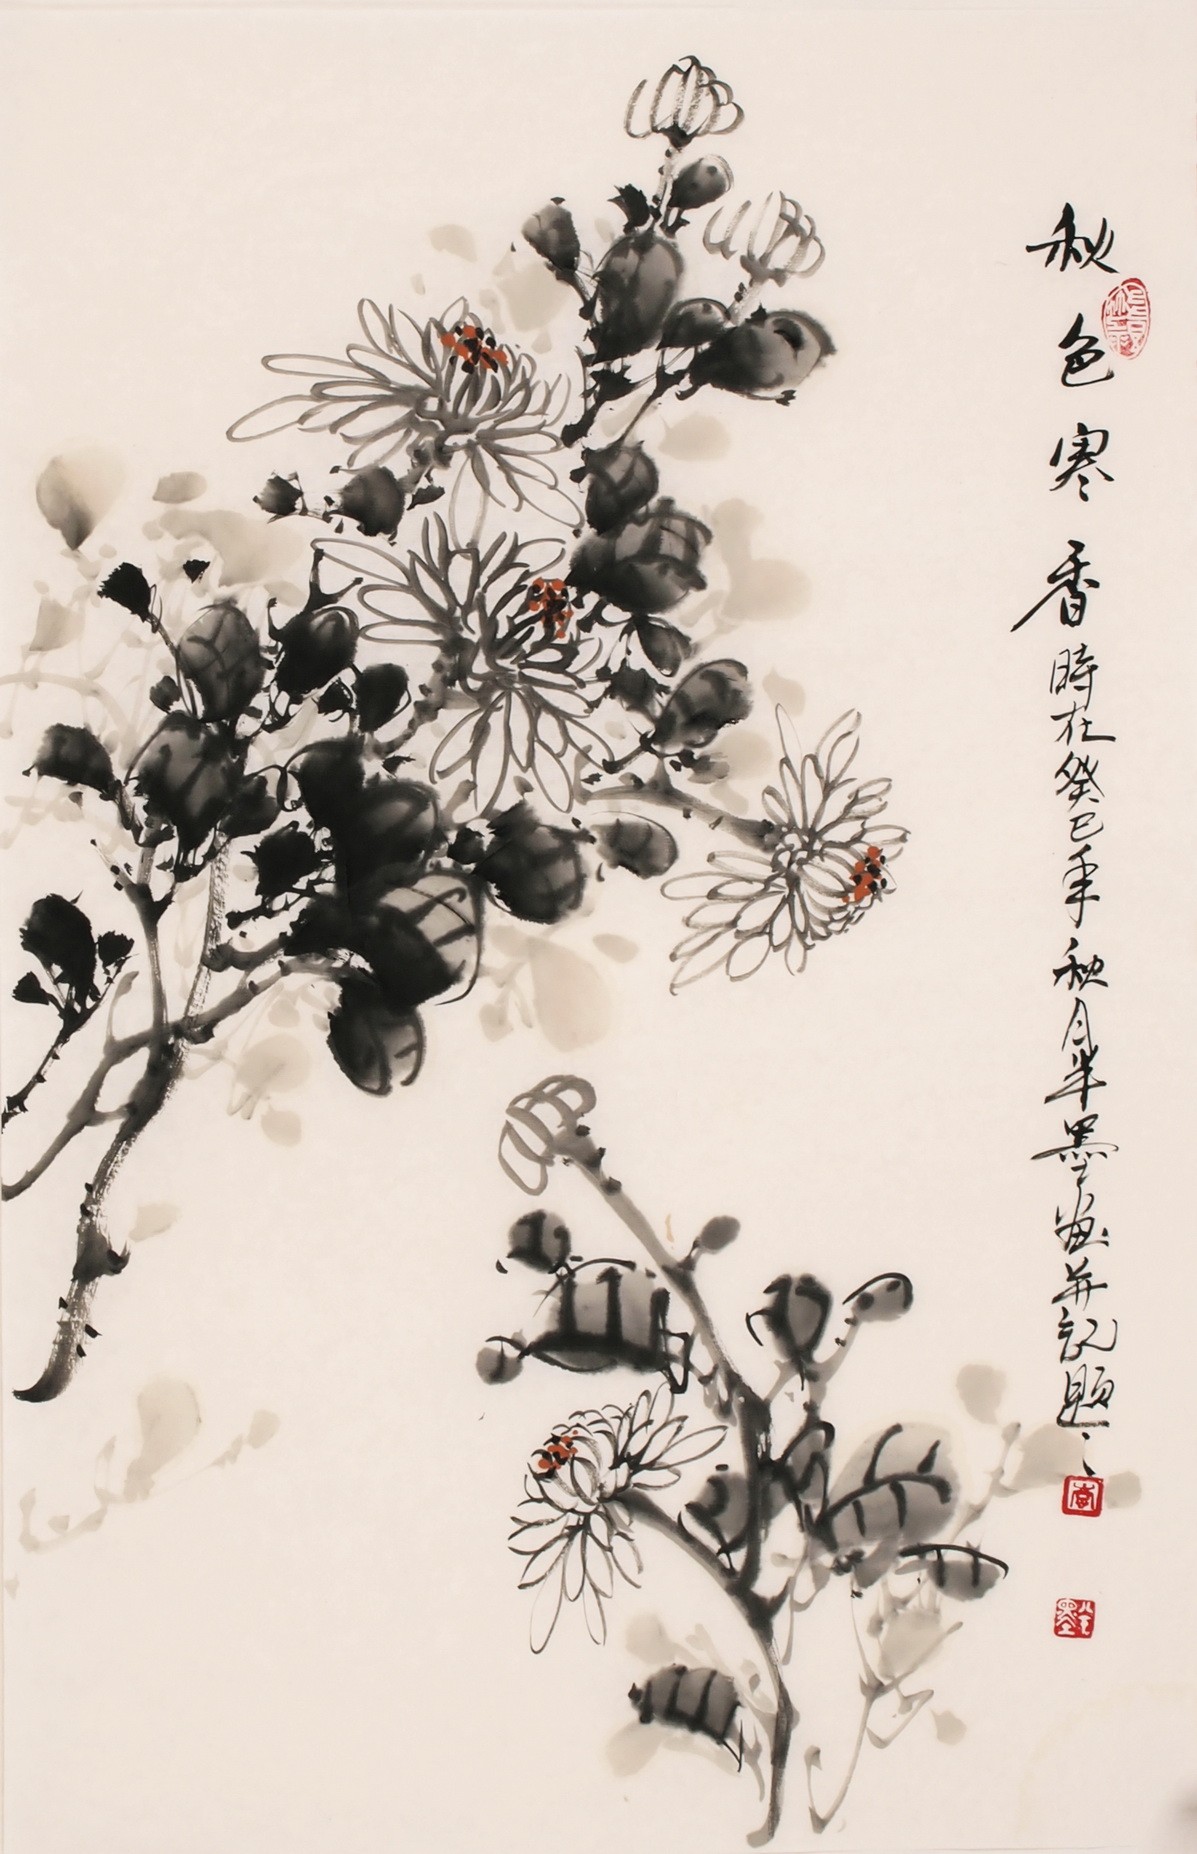 秋色寒香時在癸巳年秋月半墨画并記題